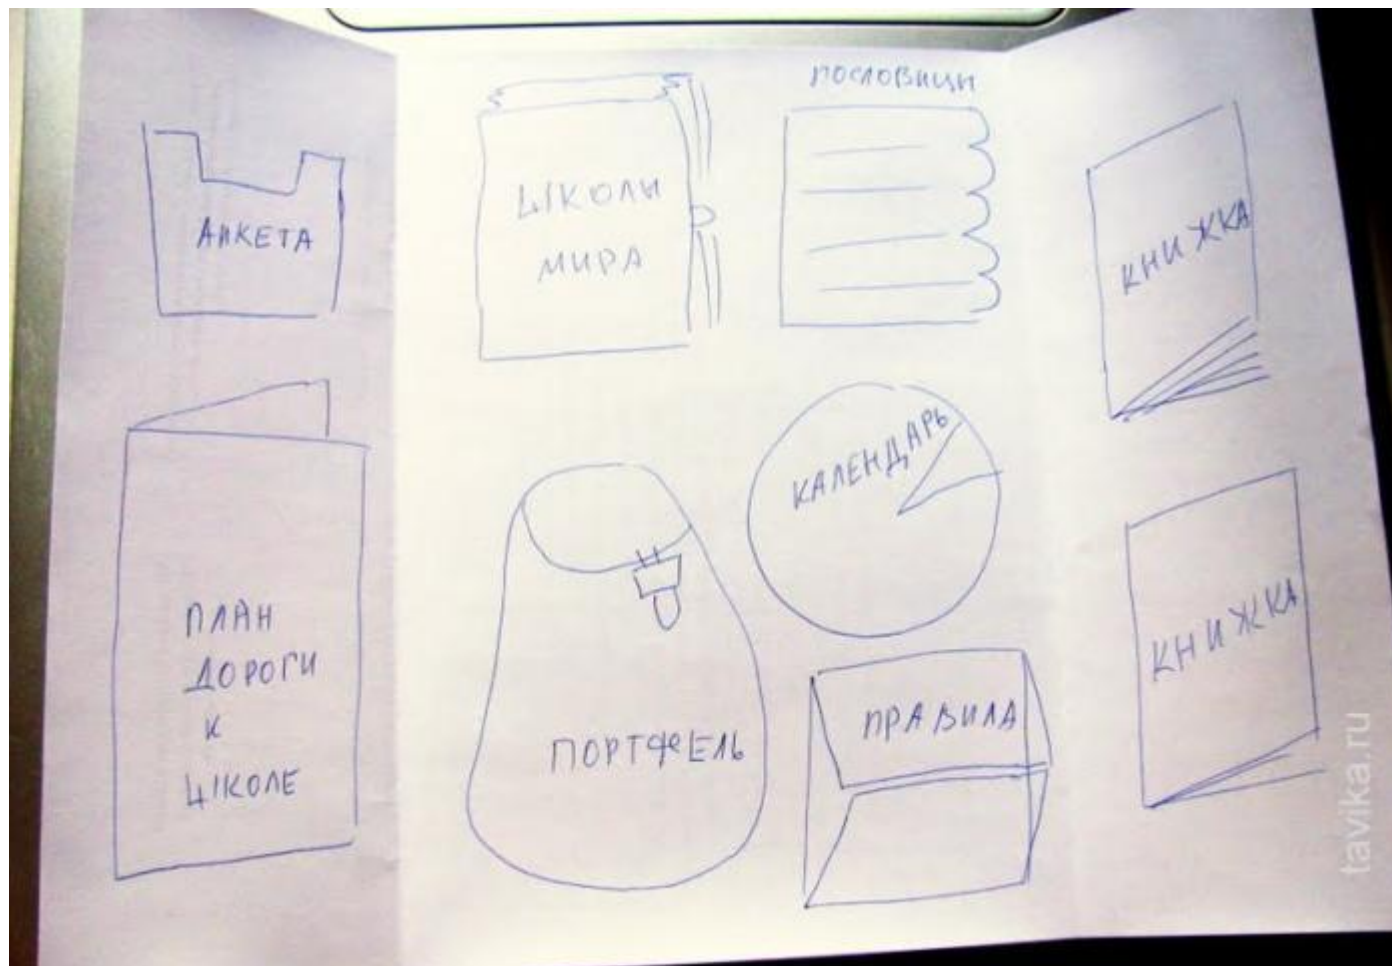 АНКЕТА
ПЛАН
ДОРОГИ
К
ШКОЛЕ
ШКОЛЫ
МИРА
ПОСЛОВИЦЫ
ПОРТФЕЛЬ
КАЛЕНДАРЬ
ПРАВИЛА
КНИЖКА
КНИЖКА
tavika.ru